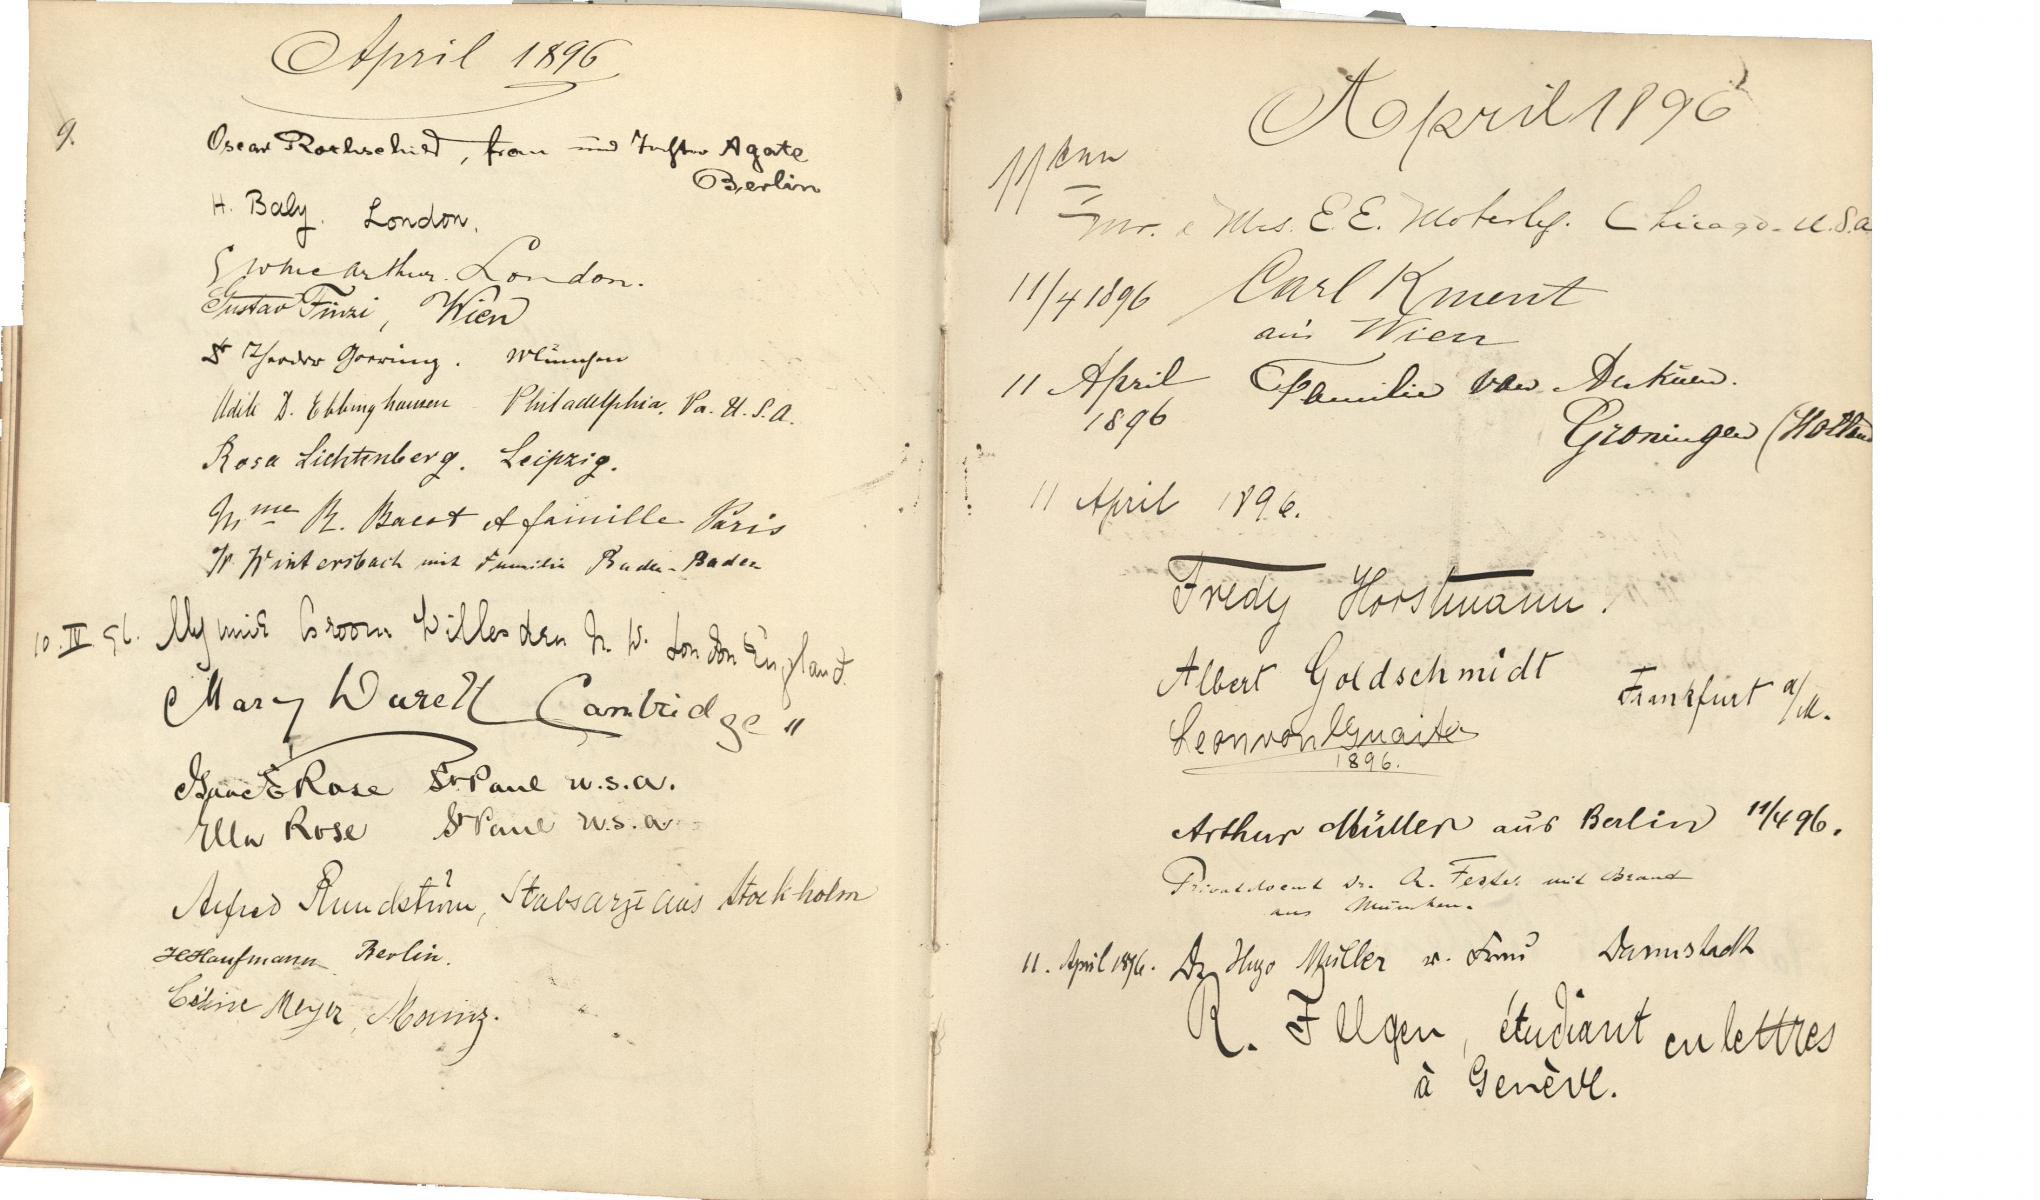 April 1896
9.
Oscar Rothschild, frau und Tochter Agate
Berlin
H. Baly. London.
Arthur. London.
Gustav Finzi, Wien
Dr Theodor Goering. München
D. Ebbinghausen Philadelphia, Pa. U.S.A.
Rosa Lichtenberg. Leipzig.
Mme R. Bacot et famille Paris
W. Wintersbach mit Familie Baden-Baden
10.IV.96. Groom Willesden N.W. London England.
Mary Cambridge "
Isaac E Rose St Paul U.S.A.
Ella Rose St Paul U.S.A.
Alfred Rundström, Stabsarzt aus Stockholm
H Kaufmann Berlin.
Céline Meyer, Mainz.
April 1896
11
Mr. & Mrs. E.E. Chicago. U.S.A
11/4 1896 Carl Kment
aus Wien
11 April Familie van
1896 Groningen (Holland
11 April 1896.
Fredy Horstmann.
Albert Goldschmidt Frankfurt a/M.
Leon von Guaita
1896.
Arthur Müller aus Berlin 11/4 96.
Privatdocent Dr. A. mit Braut
aus München.
11. April 1896. Dr Hugo Müller u. Frau Darmstadt
R. Filgen, étudiant en lettres
à Genève.